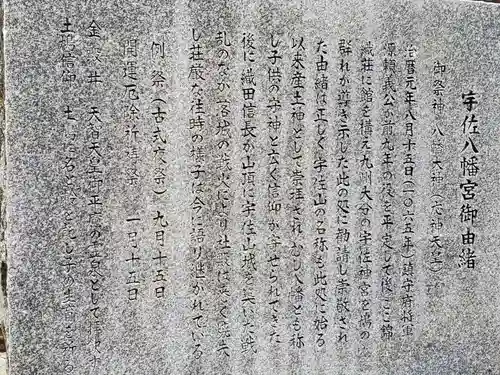 宇佐八幡宮御由緒
御祭神 八幡大神(応神天皇)
治暦元年八月十五日(一〇六五年)鎮守府将軍
源頼義公が前九年の役を平定して後ここ錦
織荘に館を構え九州大分の宇佐神宮を鳩の
群れが導き示した此の処に勧請し崇敬され
た由緒は正しく宇佐山の名称も此処に始る
以来産土神として崇拝されむし八幡とも称
し子供の守神と広く信仰が寄せられてきた
後に織田信長が山頂に宇佐山城を築いた戦
乱のなか各地の業火に社殿は悉く焼失
し荘厳な往時の様子は今に語り継がれている
例祭(古式夜祭) 九月十五日
開運厄除祈祷祭 一月十五日
金殿井 天智天皇御平癒の霊泉として
土鳩信仰 土鳩